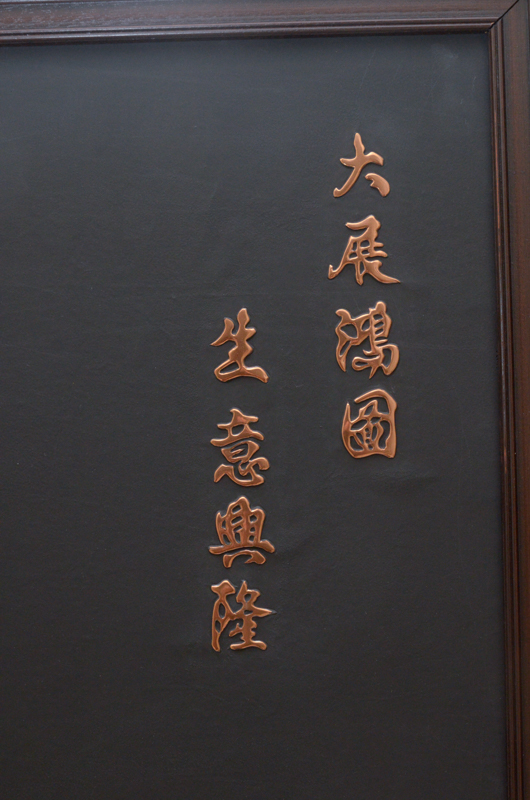 大展鴻圖
生意興隆